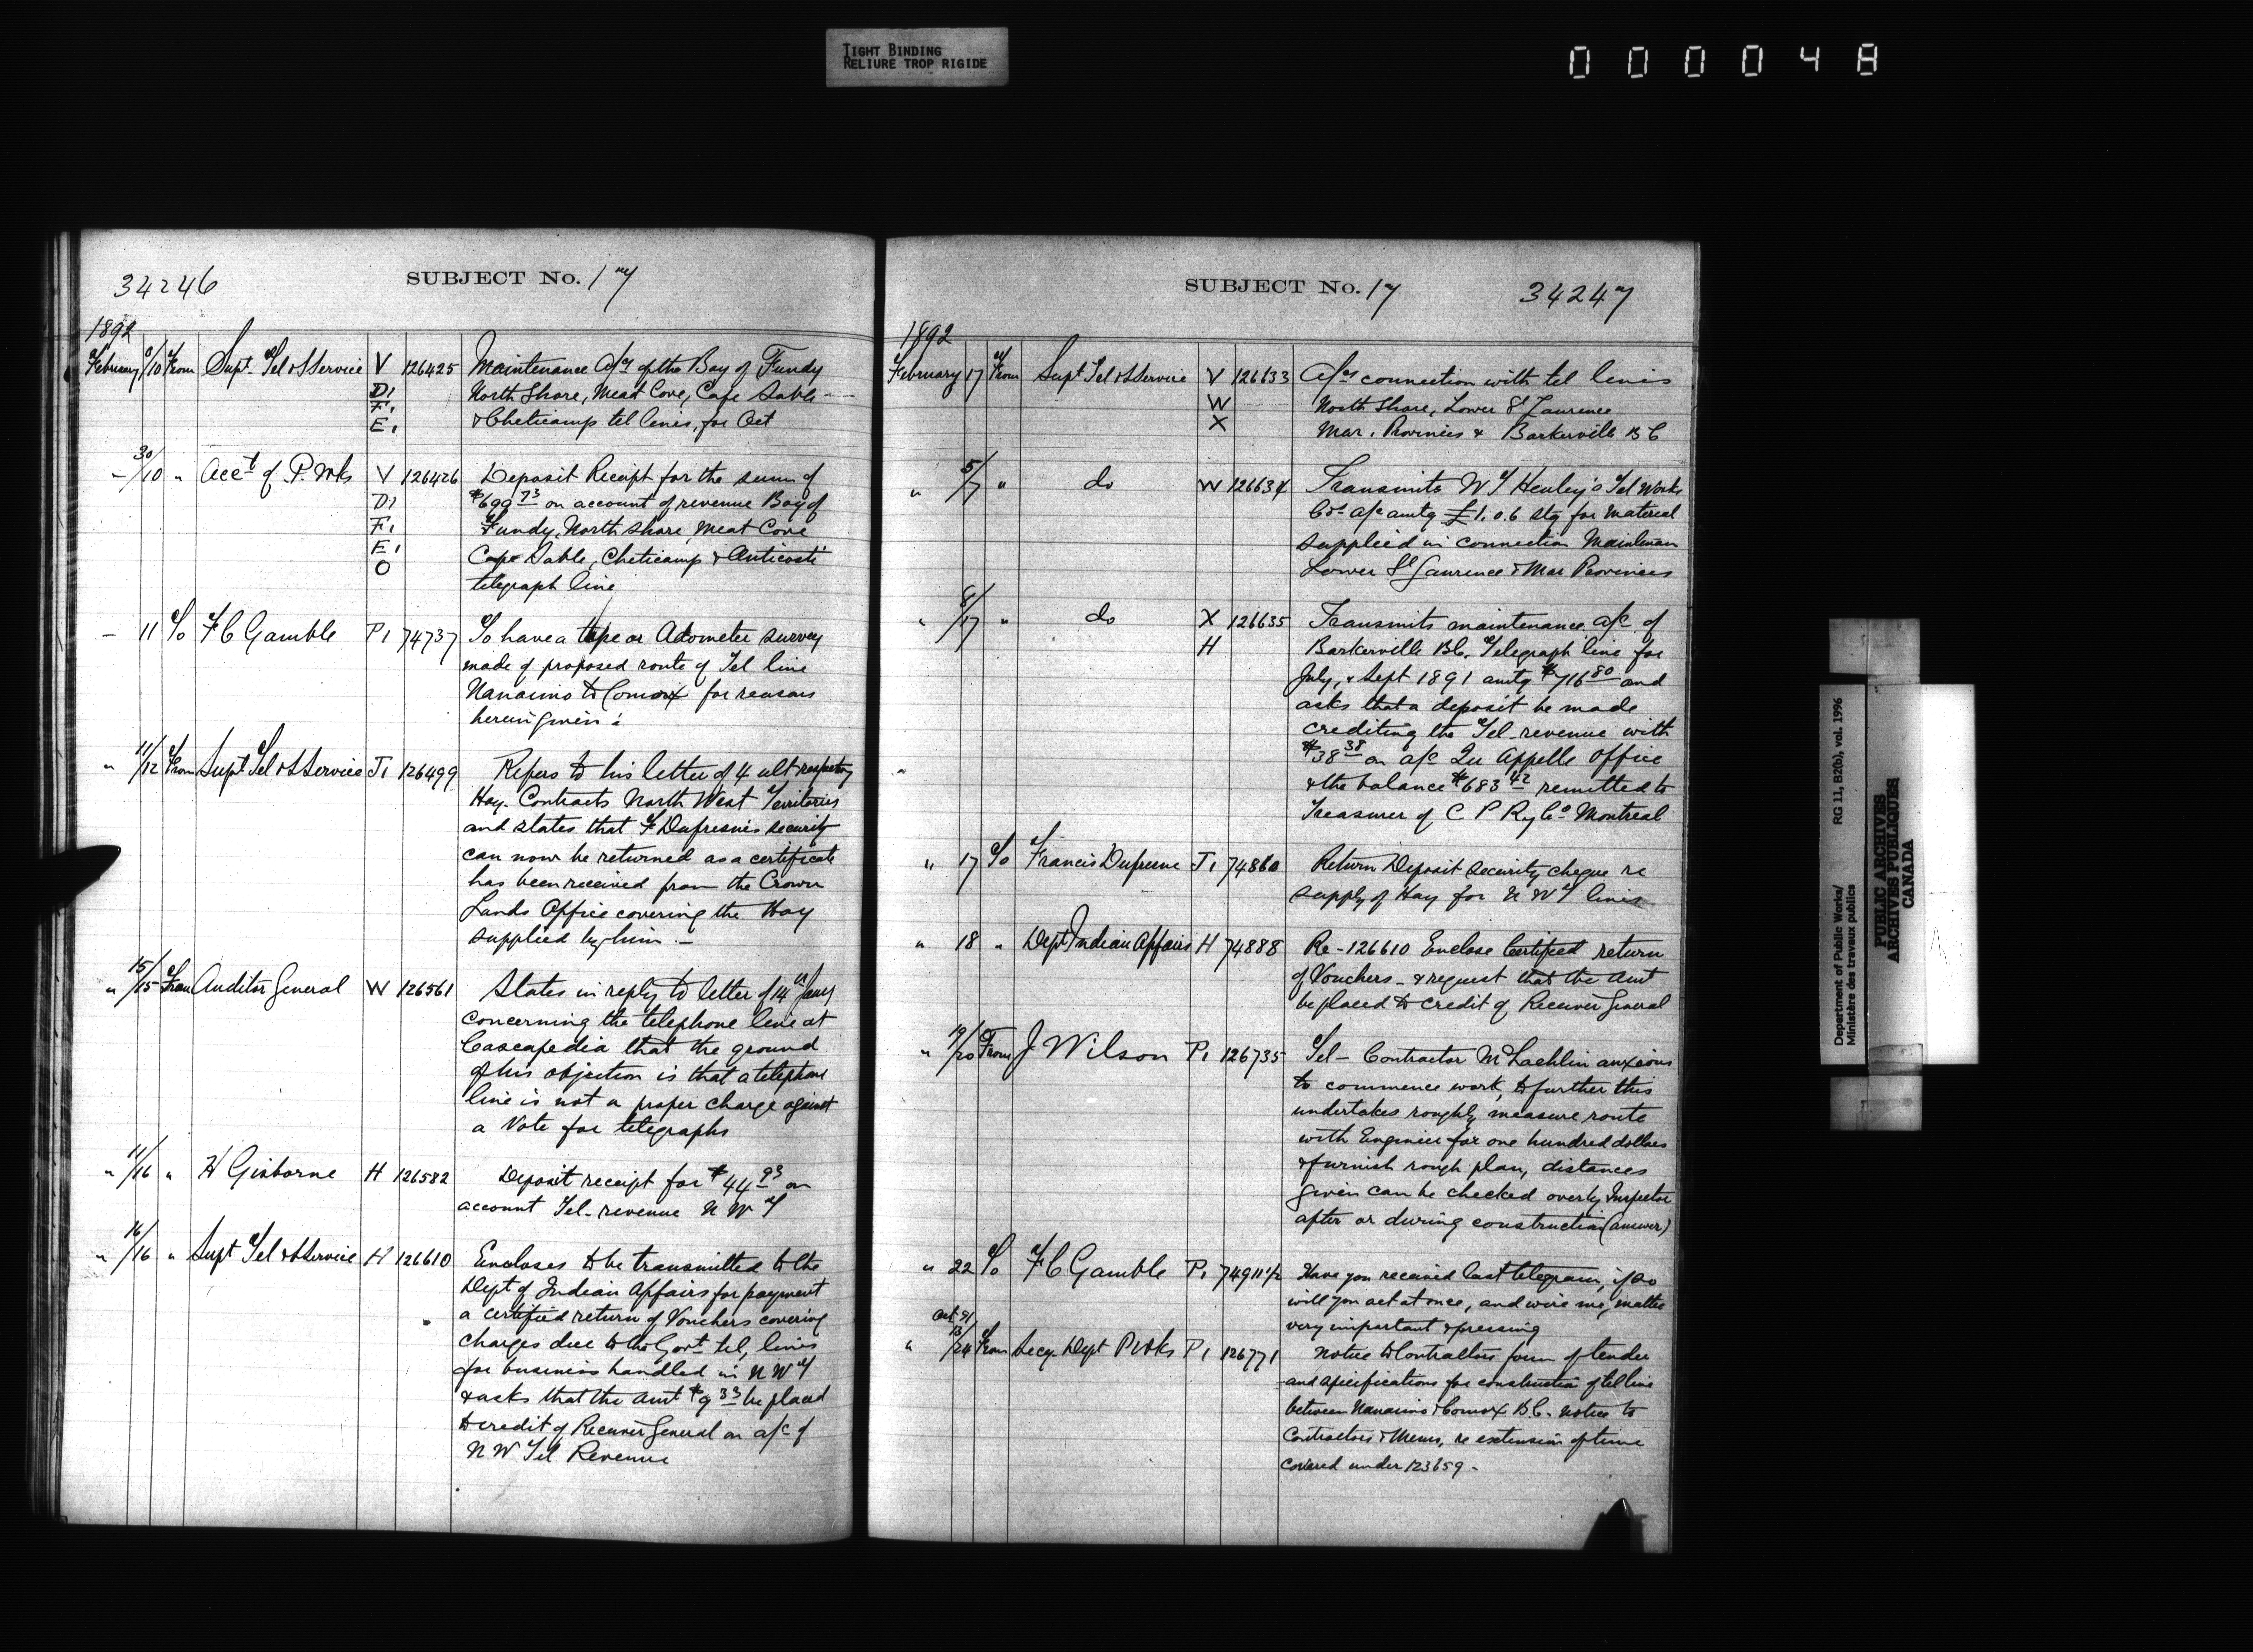 TIGHT BINDING
RELIURE TROP RIGIDE
000048
34246
SUBJECT No. 17
1892
February 8/10 From Supt. Tel & S Service V 126425 Maintenance a/cs of the Bay of Fundy
D1 North Shore, Meat Cove, Cape Sable
F1
E1 & Cheticamp tel lines, for Oct
" 30/10 " Acct of P. Wks V 126426 Deposit Receipt for the sum of
D1 $699 73 on account of revenue Bay of
F1 Fundy, North Shore, Meat Cove
E1 Cape Sable, Cheticamp & Anticosti
O telegraph line
" 11 To F C Gamble P1 74737 To have a tape or Adometer survey
made of proposed route of Tel line
Nanaimo to Comox for reasons
herein given.
" 11/12 From Supt Tel & S Service J1 126499 Refers to his letter of 4 ult respecting
Hay Contracts North West Territories
and states that F Dufresnes security
can now be returned as a certificate
has been received from the Crown
Lands Office covering the Hay
supplied by him.—
" 15/15 From Auditor General W 126561 States in reply to letter of 14th Jany
concerning the telephone line at
Cascapedia that the ground
of his objection is that a telephone
line is not a proper charge against
a Vote for telegraphs
" 11/16 " H Gisborne H 126582 Deposit receipt for $44 93 on
account Tel. revenue N W T
" 16/16 " Supt Tel & S Service H 126610 Encloses to be transmitted to the
Dept of Indian Affairs for payment
a certified return of Vouchers covering
charges due to the Govt tel, lines
for business handled in N W T
& asks that the amt $9 33 be placed
to credit of Receiver General on a/c of
N W Tel Revenue
SUBJECT No. 17
34247
1892
February 17 From Supt Tel & S Service V 126633 A/cs connection with tel lines
W North Shore, Lower St Laurence
X Mar. Provinces & Barkerville B C
" 5/17 " do W 126634 Transmits W T Henley's Tel Works
Cos a/c amtg £1.0.6 stg for material
supplied in connection Maintenan
Lower St Laurence & Mar Provinces
" 8/17 " do X 126635 Transmits maintenance a/c of
H Barkerville BC. Telegraph line for
July, & Sept 1891 amtg $716 80 and
asks that a deposit be made
crediting the Tel. revenue with
$38 38 on a/c Qu Appelle Office
& the balance $683 42 remitted to
Treasurer of C P Ry Co Montreal
" 17 To Francis Dufresne J1 74860 Return Deposit security cheque re
supply of Hay for N W T lines
" 18 " Dept Indian Affairs H 74888 Re - 126610 Enclose Certified return
of Vouchers - & request that the amt
be placed to credit of Receiver General
" 19/20 From J Wilson P1 126735 Tel— Contractor McLachlin anxious
to commence work, to further this
undertakes roughly measure route
with Engineer for one hundred dollars
& furnish rough plan, distances
given can be checked over by Inspector
after or during construction (answer)
" 22 To F C Gamble P1 74911 1/2 Have you received last telegram, if so
will you act at once, and wire me, matter
very important & pressing
Oct 91
" 13/24 From Secy. Dept P Wks P1 126771 Notice to Contractors form of tender
and specifications for construction of tel line
between Nanaimo & Comox B.C. notice to
Contractors & Memo, re extension of time
covered under 123659.
Department of Public Works/ RG 11, B2(b), vol. 1996
Ministère des travaux publics
PUBLIC ARCHIVES
ARCHIVES PUBLIQUES
CANADA